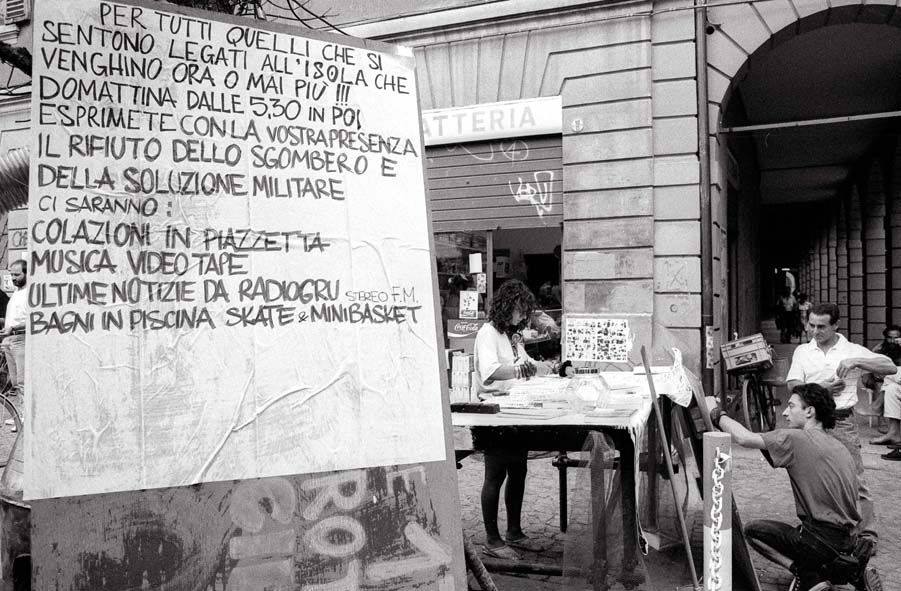 PER TUTTI QUELLI CHE SI
SENTONO LEGATI ALL'ISOLA CHE
VENGHINO ORA O MAI PIU' !!!
DOMATTINA DALLE 5,30 IN POI
ESPRIMETE CON LA VOSTRA PRESENZA
IL RIFIUTO DELLO SGOMBERO E
DELLA SOLUZIONE MILITARE
CI SARANNO :
COLAZIONI IN PIAZZETTA
MUSICA VIDEO TAPE
ULTIME NOTIZIE DA RADIOGRU STEREO F.M.
BAGNI IN PISCINA SKATE & MINIBASKET
ATTERIA
Coca-Cola